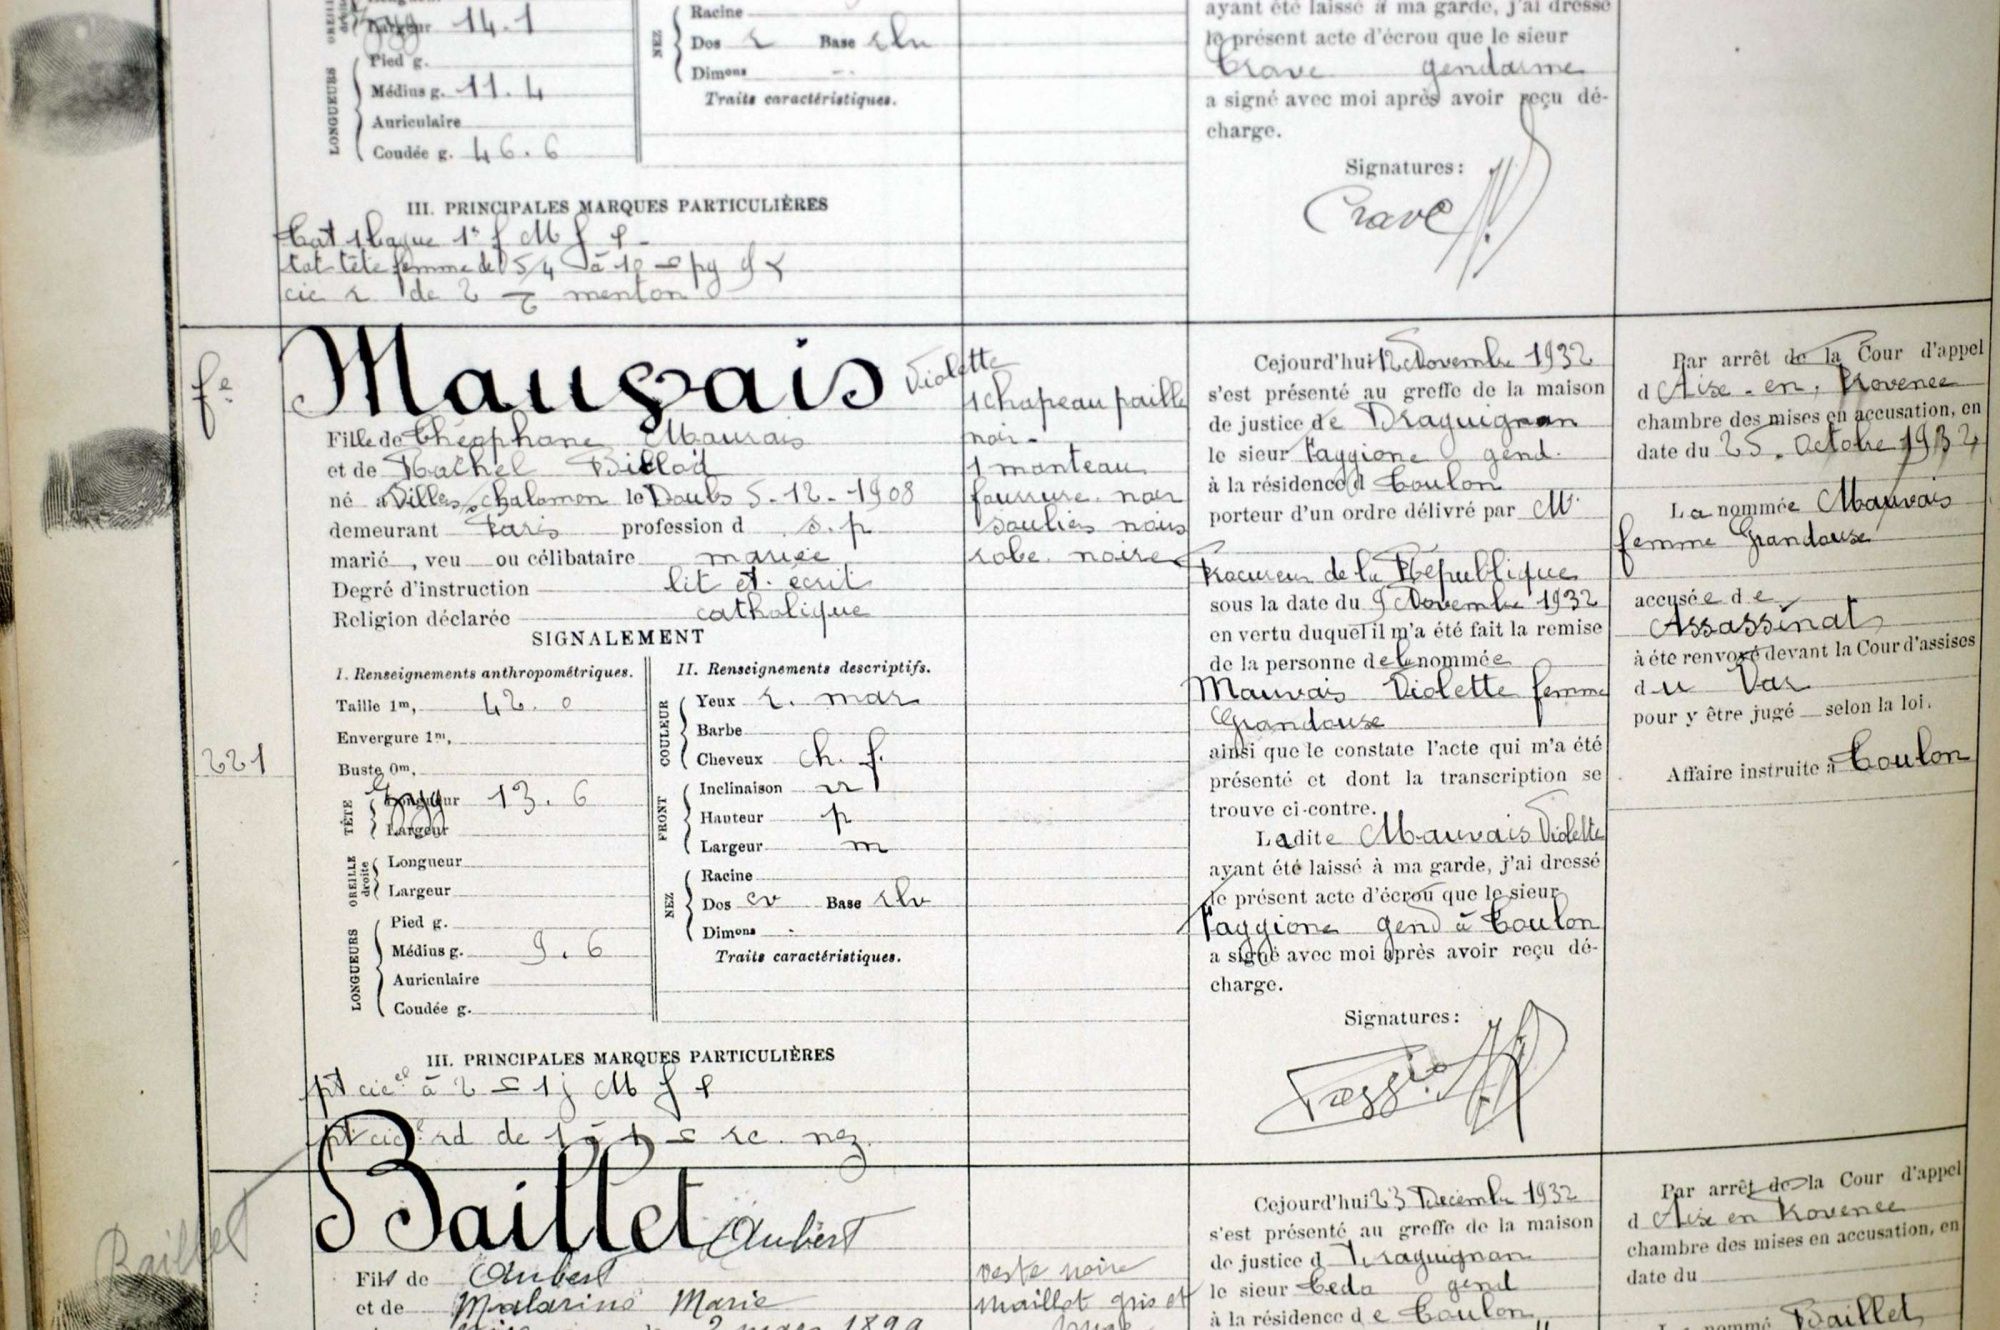 Largeur 14.1
LONGUEURS
Pied g.
Médius g. 11.4
Auriculaire
Coudée g. 46.6
NEZ
Racine
Dos r Base rlv
Dimons
Traits caractéristiques.
III. PRINCIPALES MARQUES PARTICULIÈRES
tat 1 bague 1e f M f
tat tête femme de 5/4 à 10
cic r de 2 menton
ayant été laissé à ma garde, j'ai dressé
le présent acte d'écrou que le sieur
Crave gendarme
a signé avec moi après avoir reçu dé-
charge.
Signatures:
Crave
fe
221
Mauvais Violette
Fille de Théophane Mauvais
et de Rachel Billod
né à Villers/s/chalamon le Doubs 5-12-1908
demeurant Paris profession d s.p
marié , veu ou célibataire mariée
Degré d'instruction lit et écrit
Religion déclarée catholique
SIGNALEMENT
I. Renseignements anthropométriques.
Taille 1m, 42.0
Envergure 1m,
Buste 0m,
TÊTE
Longueur 13.6
Largeur
OREILLE droite
Longueur
Largeur
LONGUEURS
Pied g.
Médius g. 9.6
Auriculaire
Coudée g.
II. Renseignements descriptifs.
COULEUR
Yeux r. mar
Barbe
Cheveux ch. f.
FRONT
Inclinaison
Hauteur p
Largeur m
NEZ
Racine
Dos cv Base rlv
Dimons
Traits caractéristiques.
III. PRINCIPALES MARQUES PARTICULIÈRES
pt cic el à 2 1j M f
pt cic rd de 1 à 1 rc. nez.
1 chapeau paille
noir
1 manteau
fourrure noir
souliers noirs
robe noire
Cejourd'hui 12 Novembre 1932
s'est présenté au greffe de la maison
de justice de Draguignan
le sieur Faggione gend.
à la résidence d Toulon
porteur d'un ordre délivré par Mr
Procureur de la République
sous la date du 9 Novembre 1932
en vertu duquel il m'a été fait la remise
de la personne de la nommée
Mauvais Violette femme
Grandouse
ainsi que le constate l'acte qui m'a été
présenté et dont la transcription se
trouve ci-contre.
Ladite Mauvais Violette
ayant été laissé à ma garde, j'ai dressé
le présent acte d'écrou que le sieur
Faggione gend à Toulon
a signé avec moi après avoir reçu dé-
charge.
Signatures:
Par arrêt de la Cour d'appel
d Aix-en-Provence
chambre des mises en accusation, en
date du 25 Octobre 1932
La nommée Mauvais
femme Grandouse
accusée de
Assassinat
à été renvoyé devant la Cour d'assises
du Var
pour y être jugé selon la loi.
Affaire instruite à Toulon
Baillet
Baillet Aubert
Fils de Aubert
et de Malarino Marie
2 mars 1899
veste noire
maillot gris et
Cejourd'hui 23 Decembre 1932
s'est présenté au greffe de la maison
de justice d Draguignan
le sieur Ceda gend
à la résidence de Toulon
Par arrêt de la Cour d'appel
d Aix en Provence
chambre des mises en accusation, en
date du
nommé Baillet